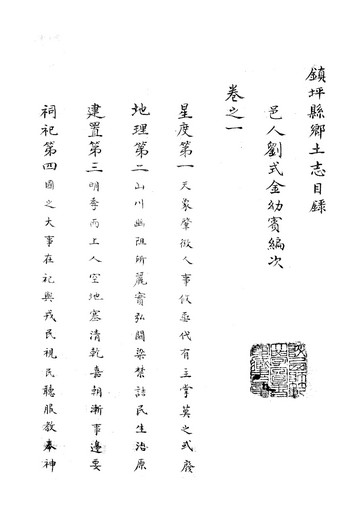 鎮坪縣鄉土志目錄
邑人劉式金幼賓編次
卷之一
星度第一 天象肇微人事攸垂代有主掌莫之或廢
地理第二 山川幽阻所麗實弘關梁禁詰民生治原
建置第三 明季而上人空地塞清乾嘉朝漸事邊要
祠祀第四 國之大事在祀與戎民視民聽服教奉神